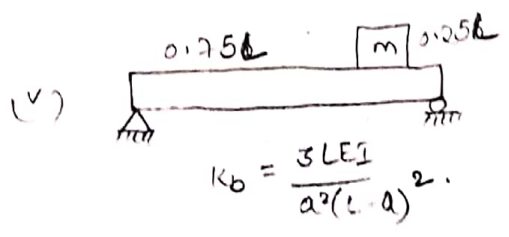 0.75L
m
0.25L
(v)
Kb = 3LEI / a²(L-a)².